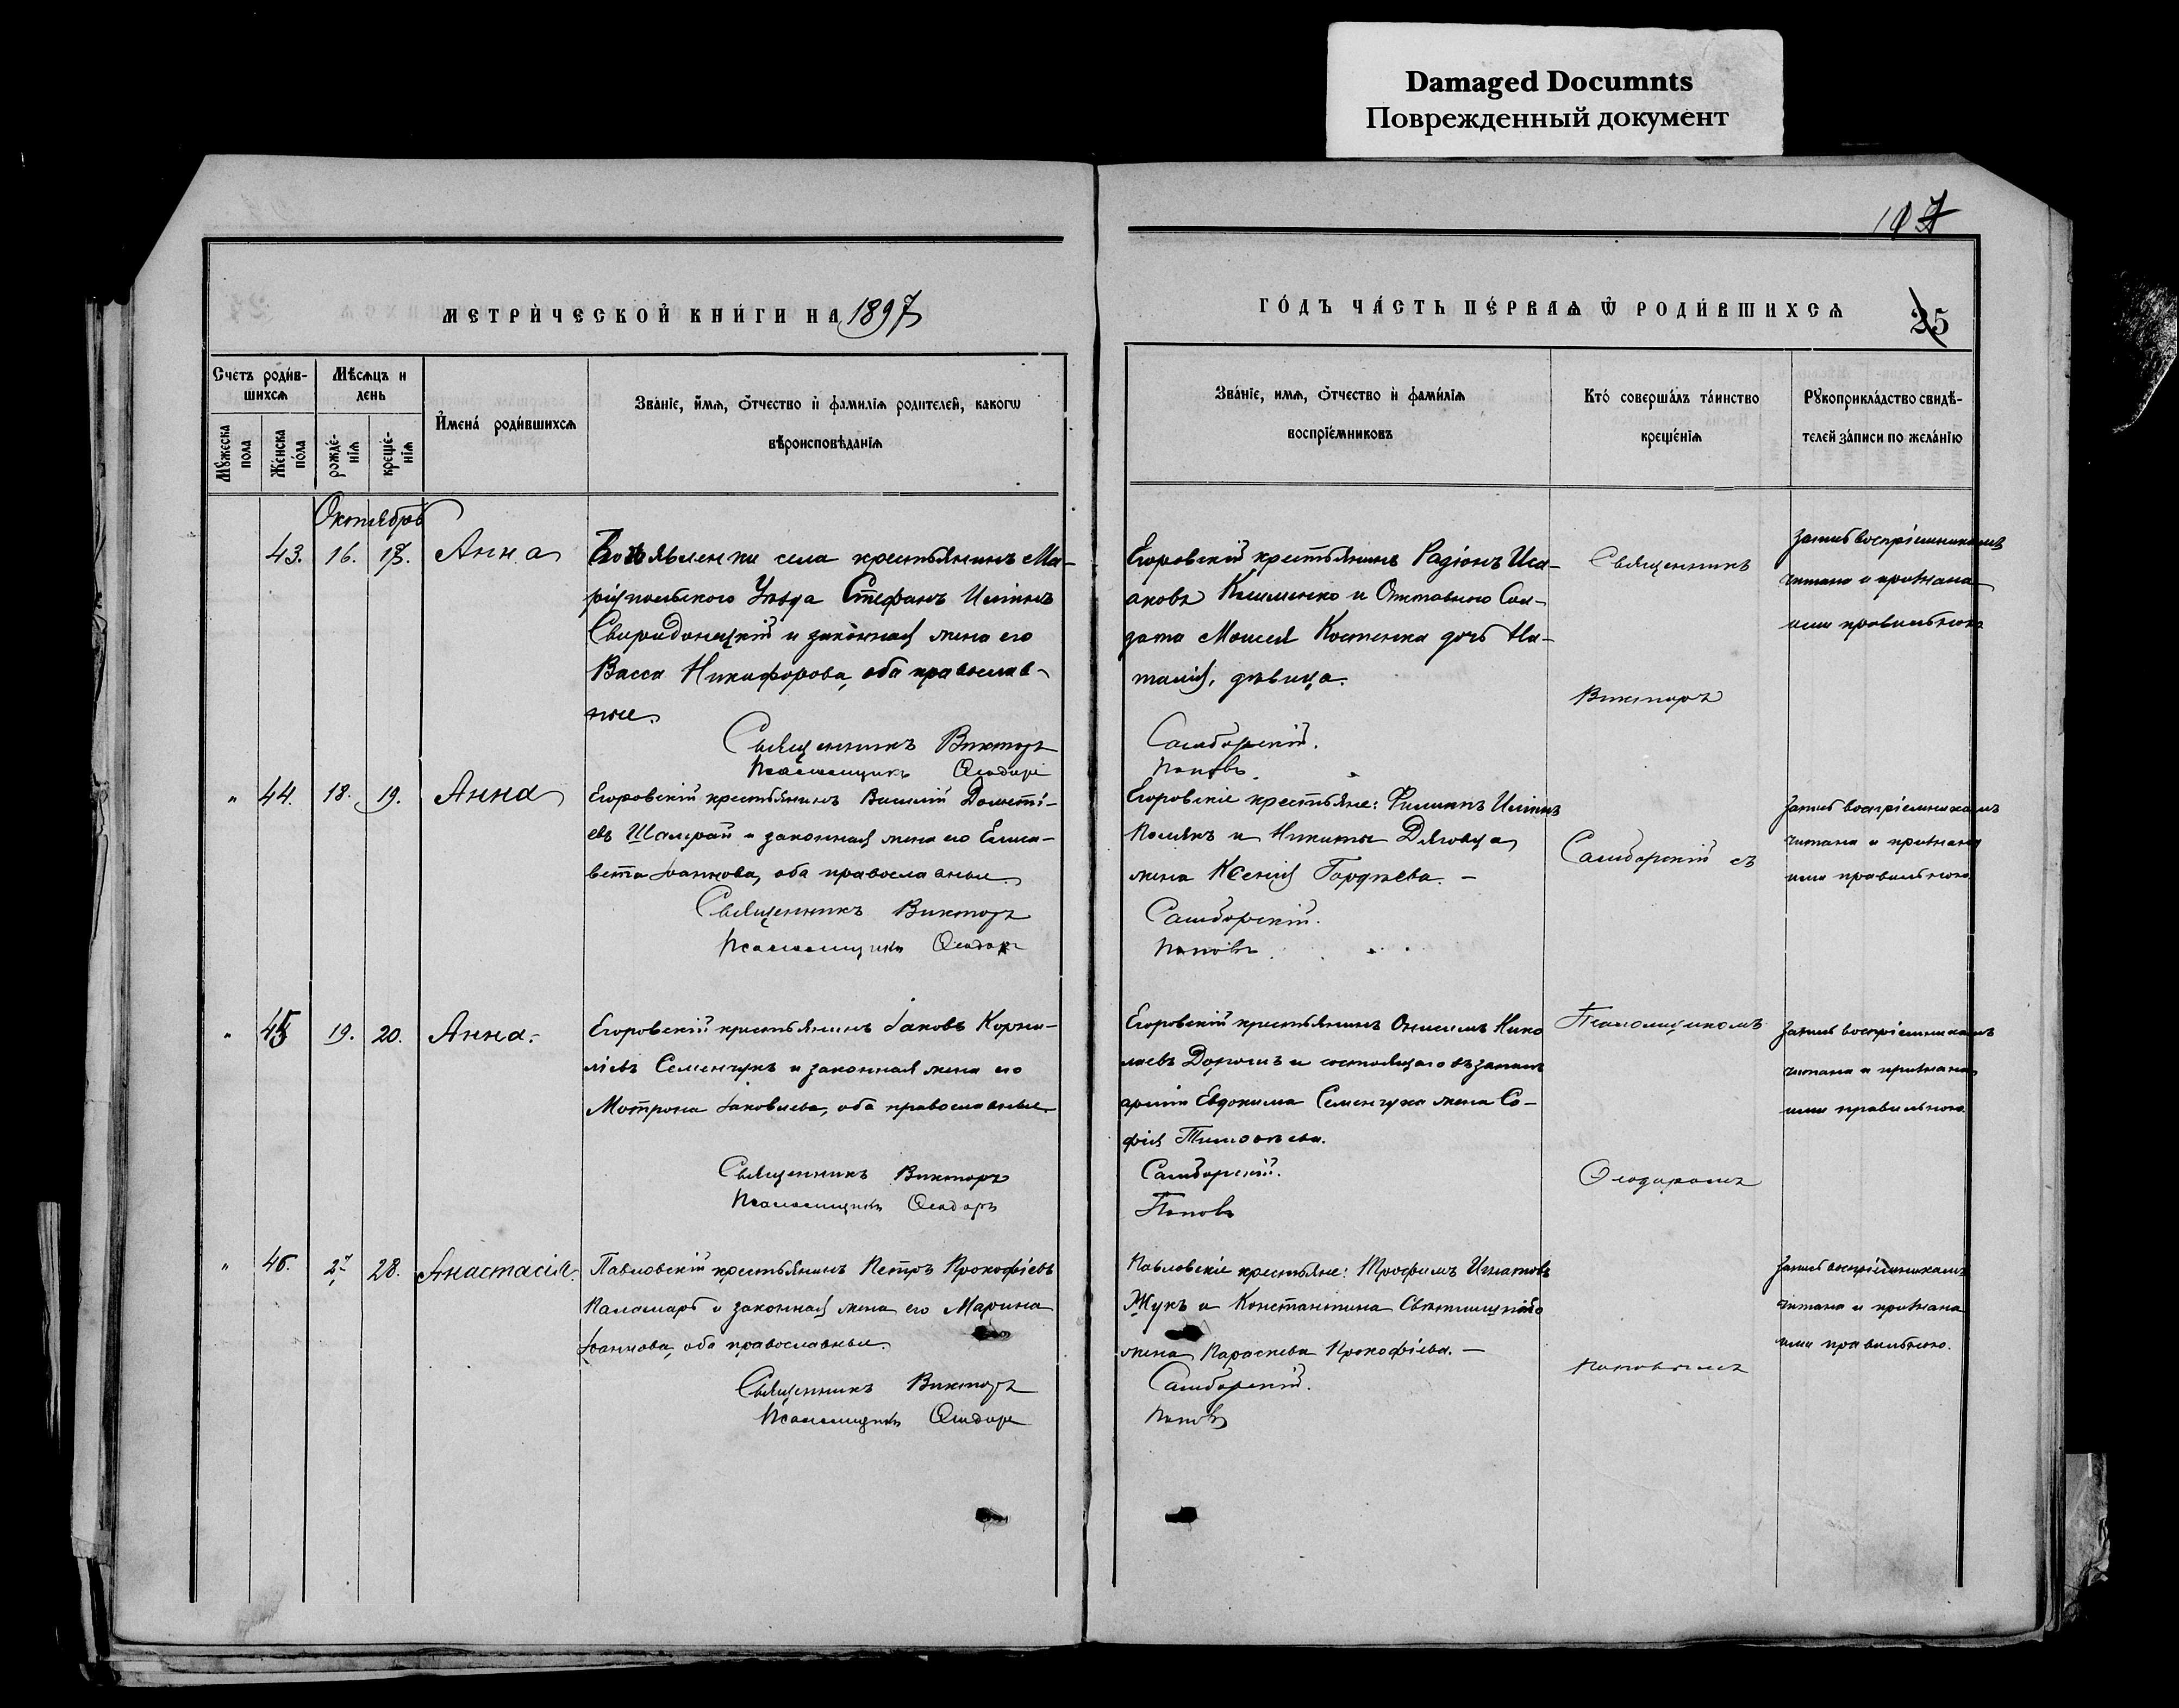 Damaged Documnts
Поврежденный документ
107
МЕТРИ́ЧЕСКОЙ КНИ́ГИ НА 1897
ГО́ДЪ ЧА́СТЬ ПЕ́РВАѦ Ѿ РОДИ́ВШИХСѦ
25
Счетъ роди́в-
шихсѧ
Мѣсѧцъ и
день
И҆мена́ роди́вшихсѧ
Зва́нїе, и҆́мѧ, ѻ҆́тчество и҆ фамилїѧ родителей, какогѡ
вѣроисповѣданїѧ
Мꙋжеска
пола
Же́нска
по́ла
рожде́-
нїѧ
креще́-
нїѧ
Зва́нїе, имѧ, ѻ҆́тчество и҆ фами́лїѧ
воспрїе́мниковъ
Кто́ соверша́лъ та́инство
креще́нїѧ
Рꙋкоприкла́дство свидѣ́-
телей за́писи по жела́нїю
Октябрь
43. 16. 18. Анна
Богоявленки села крестьянинъ Ма-
ріупольского Уѣзда Стефанъ Иліинъ
Свиридонецкій и законная жена его
Васса Никифорова, оба православ-
ные.
Священникъ Викторъ
Псаломщикъ Ѳеодоръ
Егоровскій крестьянинъ Радіонъ Иса-
аковъ Клименко и Отставного Сол-
дата Моисея Костенка дочь На-
талія, дѣвица.
Самборскій.
Поповъ.
Священникъ
Викторъ
Запись воспріемникамъ
читана и признана
ими правильною
" 44. 18. 19. Анна
Егоровскій крестьянинъ Василій Дометі-
евъ Шамрай и законная жена его Елиса-
вета Іоаннова, оба православные.
Священникъ Викторъ
Псаломщикъ Ѳеодоръ
Егоровскіе крестьяне: Филипъ Иліинъ
Полякъ и Никиты Дяговца
жена Ксенія Гордѣева. —
Самборскій.
Поповъ.
Самборскій съ
Запись воспріемникамъ
читана и признана
ими правильною
" 45 19. 20. Анна.
Егоровскій крестьянинъ Іаковъ Корни-
ліевъ Семенчукъ и законная жена его
Мотрона Іаковлева, оба православные.
Священникъ Викторъ
Псаломщикъ Ѳеодоръ
Егоровскій крестьянинъ Онисимъ Нико
лаевъ и состоящаго въ запасѣ
арміи Евдокима Семенчука жена Со-
фія Тимоѳеева.
Самборскій.
Поповъ
Псаломщикомъ
Ѳеодоромъ
Запись воспріемникамъ
читана и признана
ими правильною
" 46. 27 28. Анастасія.
Павловскій крестьянинъ Петръ Прокофіевъ
Паламарь и законная жена его Марина
Іоаннова, оба православные.
Священникъ Викторъ
Псаломщикъ Ѳеодоръ
Павловскіе крестьяне: Трофимъ Игнатовъ
Жукъ и Константина
жена Параскева Прокофіева. —
Самборскій.
Поповъ
Поповымъ
Запись воспріемникамъ
читана и признана
ими правильною.